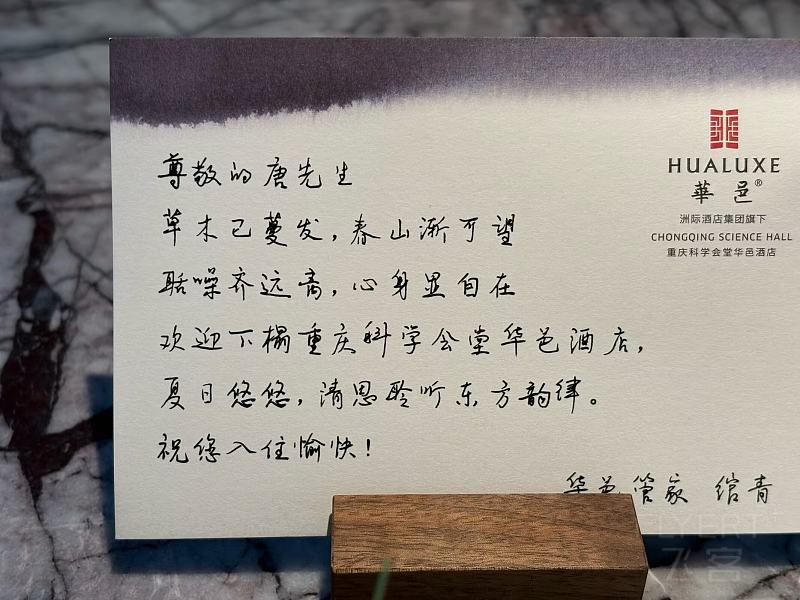 HUALUXE
華邑®
洲际酒店集团旗下
CHONGQING SCIENCE HALL
重庆科学会堂华邑酒店
尊敬的唐先生
草木已蔓发,春山渐可望
聒噪齐远斋,心身显自在
欢迎下榻重庆科学会堂华邑酒店,
夏日悠悠,清思聆听东方韵律。
祝您入住愉快!
华邑管家 绾青
FLYERT
飞客